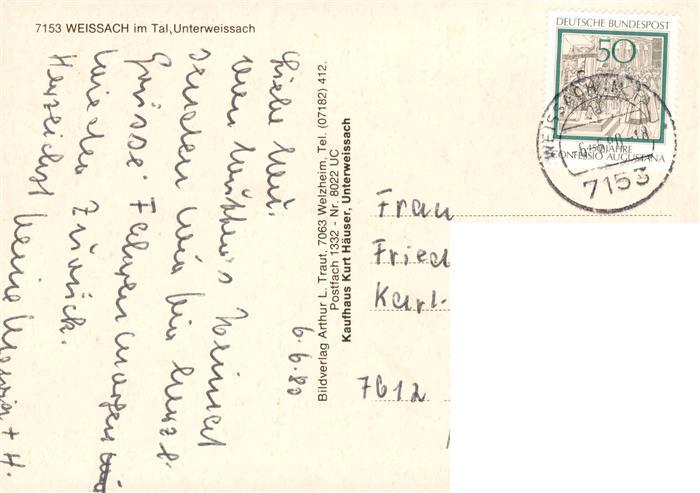 7153 WEISSACH im Tal, Unterweissach
DEUTSCHE BUNDESPOST
50
450 JAHRE
CONFESSIO AUGUSTANA
WEISSACH IM T
6.6.80-18
7153
6.6.80
senden wir Dir kurze
Grüsse. Fahren morgen
wieder zurück.
Herzlichst
Bildverlag Arthur L. Traut, 7063 Welzheim, Tel. (07182) 412.
Postfach 1332 - Nr. 8022 UC
Kaufhaus Kurt Häuser, Unterweissach
Frau
Fried
Karl-
7612